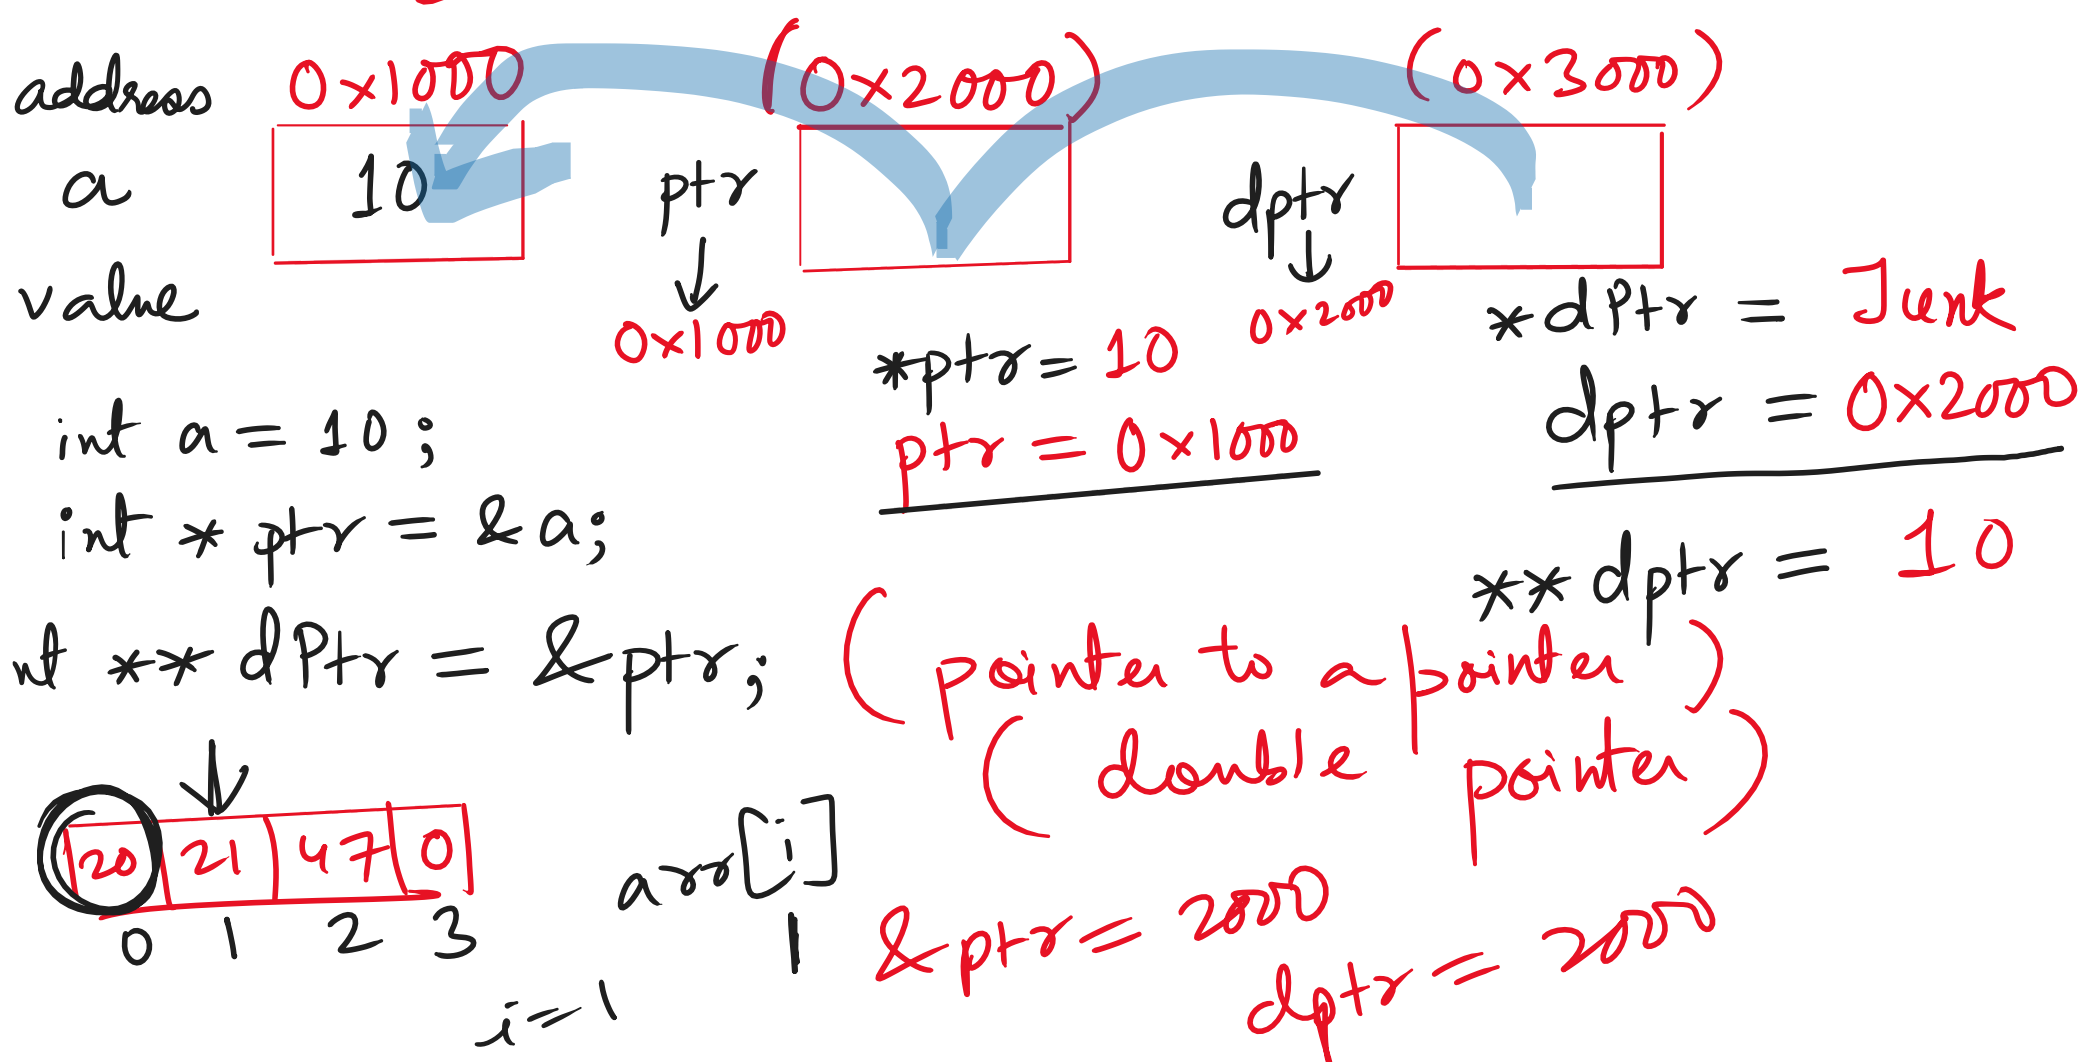 address 0x1000 (0x2000) (0x3000)
a 10 ptr dptr
value 0x1000 0x2000
*ptr = 10 *dPtr = Junk
int a = 10 ; ptr = 0x1000 dptr = 0x2000
int * ptr = &a;
**dptr = 10
nt ** dPtr = &ptr; (pointer to a pointer)
(double pointer)
20 21 47 0 arr[i]
0 1 2 3 1 &ptr = 2000
i = 1 dptr = 2000